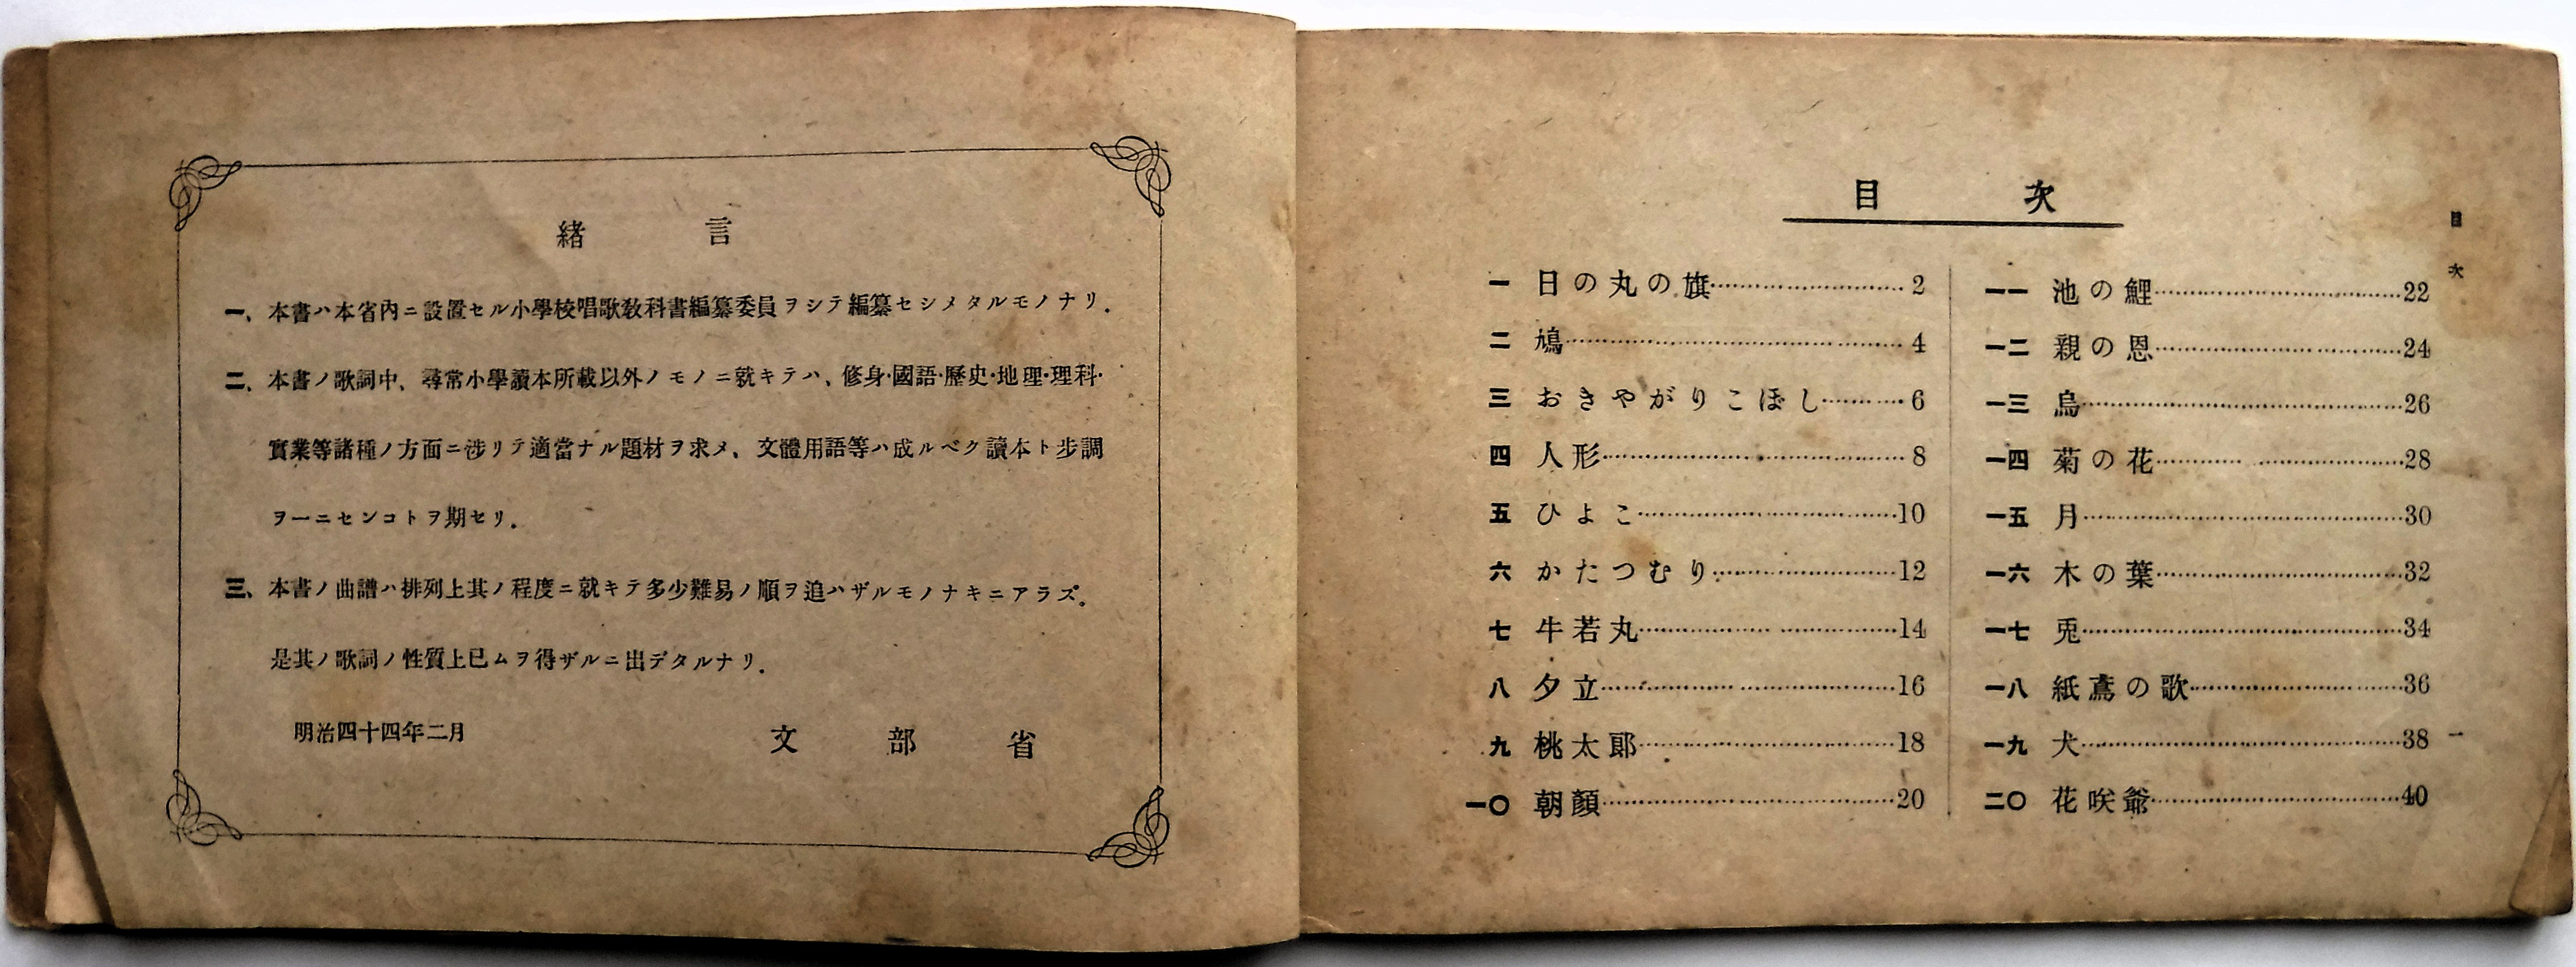 緒言
一、本書ハ本省內ニ設置セル小學校唱歌敎科書編纂委員ヲシテ編纂セシメタルモノナリ。
二、本書ノ歌詞中、尋常小學讀本所載以外ノモノニ就キテハ、修身·國語·歷史·地理·理科·
實業等諸種ノ方面ニ涉リテ適當ナル題材ヲ求メ、文體用語等ハ成ルベク讀本ト步調
ヲ一ニセンコトヲ期セリ。
三、本書ノ曲譜ハ排列上其ノ程度ニ就キテ多少難易ノ順ヲ追ハザルモノナキニアラズ。
是其ノ歌詞ノ性質上已ムヲ得ザルニ出デタルナリ。
明治四十四年二月
文部省
目次
一 日の丸の旗 2
二 鳩 4
三 おきやがりこぼし 6
四 人形 8
五 ひよこ 10
六 かたつむり 12
七 牛若丸 14
八 夕立 16
九 桃太郎 18
一〇 朝顏 20
一一 池の鯉 22
一二 親の恩 24
一三 烏 26
一四 菊の花 28
一五 月 30
一六 木の葉 32
一七 兎 34
一八 紙鳶の歌 36
一九 犬 38
二〇 花咲爺 40
目次
一